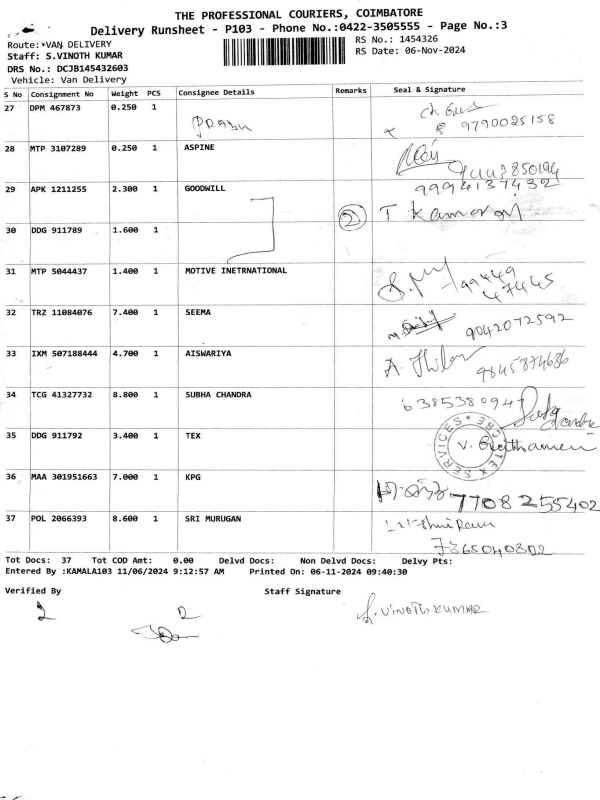 THE PROFESSIONAL COURIERS, COIMBATORE
Delivery Runsheet - P103 - Phone No.:0422-3505555 - Page No.:3
Route:*VAN DELIVERY
RS No.: 1454326
Staff: S.VINOTH KUMAR
RS Date: 06-Nov-2024
DRS No.: DCJB145432603
Vehicle: Van Delivery
S No Consignment No Weight PCS Consignee Details Remarks Seal & Signature
27 DPM 467873 0.250 1
PRABU 9790025158
28 MTP 3107289 0.250 1 ASPINE
29 APK 1211255 2.300 1 GOODWILL 9994137432
2 T
30 DDG 911789 1.600 1
31 MTP 5044437 1.400 1 MOTIVE INETRNATIONAL
99449
47445
32 TRZ 11084076 7.400 1 SEEMA
9042072592
33 IXM 507188444 4.700 1 AISWARIYA
9845874686
34 TCG 41327732 8.800 1 SUBHA CHANDRA
638538094
35 DDG 911792 3.400 1 TEX
TEX SERVICES * CBE *
36 MAA 301951663 7.000 1 KPG
7708255402
37 POL 2066393 8.600 1 SRI MURUGAN
Tot Docs: 37 Tot COD Amt: 0.00 Delvd Docs: Non Delvd Docs: Delvy Pts:
Entered By :KAMALA103 11/06/2024 9:12:57 AM Printed On: 06-11-2024 09:40:30
Verified By Staff Signature
S. VINOTH KUMAR